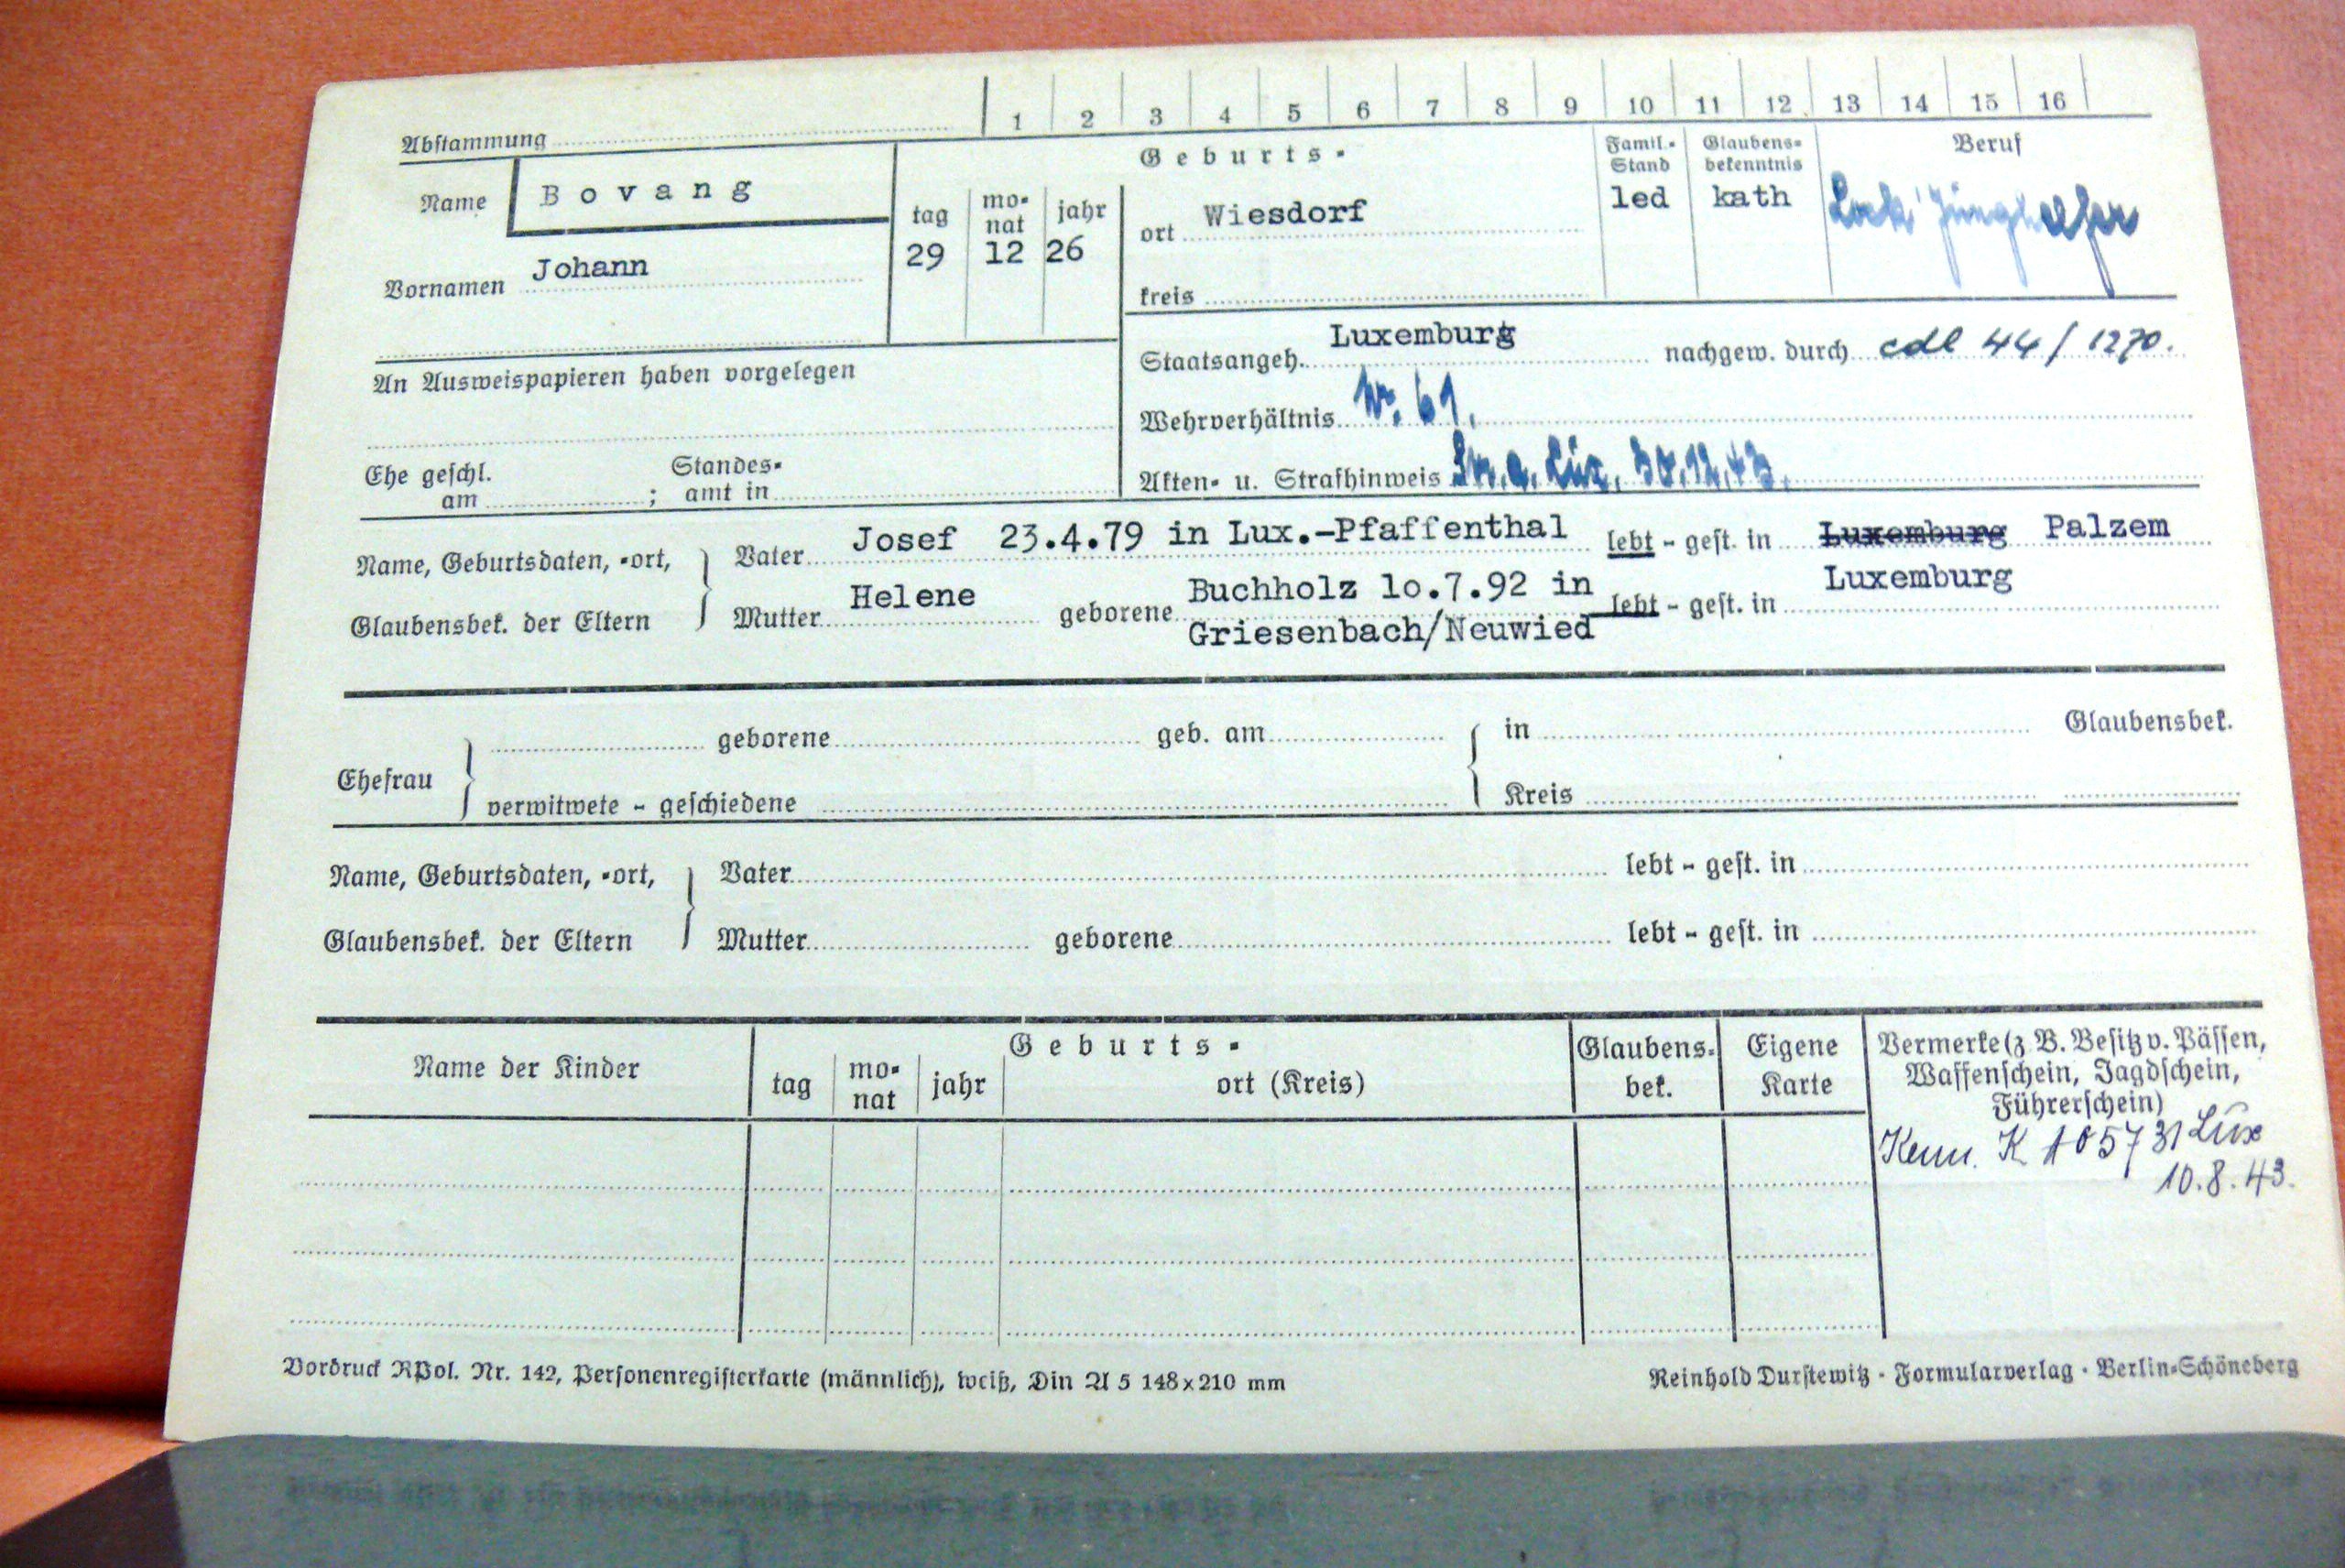 1 2 3 4 5 6 7 8 9 10 11 12 13 14 15 16
Abstammung
Name Bovang
Vornamen Johann
Geburts-
tag monat jahr
29 12 26
ort Wiesdorf
kreis
Famil.-Stand
led
Glaubensbekenntnis
kath
Beruf
An Ausweispapieren haben vorgelegen
Staatsangeh. Luxemburg nachgew. durch cdl 44/1270.
Wehrverhältnis Nr. 61.
Ehe geschl. Standes-
am ; amt in
Akten- u. Strafhinweis Lux. 30.12.43.
Name, Geburtsdaten, -ort,
Glaubensbek. der Eltern
Vater Josef 23.4.79 in Lux.-Pfaffenthal lebt - gest. in Luxemburg Palzem
Mutter Helene geborene Buchholz 1o.7.92 in lebt - gest. in Luxemburg
Griesenbach/Neuwied
Ehefrau
geborene geb. am in Glaubensbek.
verwitwete - geschiedene Kreis
Name, Geburtsdaten, -ort,
Glaubensbek. der Eltern
Vater lebt - gest. in
Mutter geborene lebt - gest. in
Name der Kinder
Geburts-
tag monat jahr ort (Kreis)
Glaubens-
bek.
Eigene
Karte
Vermerke (z. B. Besitz v. Pässen,
Waffenschein, Jagdschein,
Führerschein)
Kenn. K 105731 Lux
10.8.43.
Vordruck RPol. Nr. 142, Personenregisterkarte (männlich), weiß, Din A 5 148x210 mm
Reinhold Durstewitz · Formularverlag · Berlin-Schöneberg